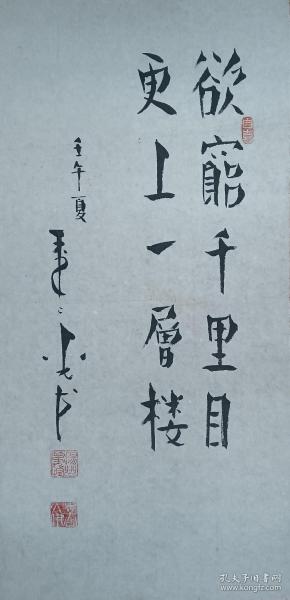 欲窮千里目
更上一層楼
壬午夏
孔夫子旧书网
www.kongfz.com